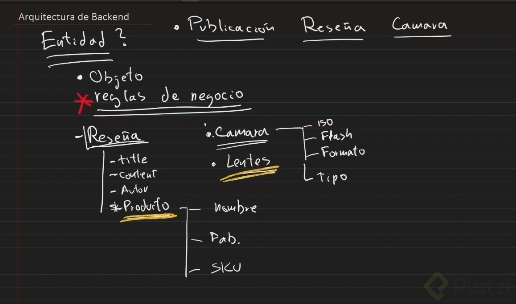 Arquitectura de Backend
Entidad?
• Publicación Reseña Camara
• Objeto
* reglas de negocio
- Reseña
- title
- Content
- Autor
* Producto
- nombre
- Fab.
- SKU
• Camara
- ISO
- Flash
- Formato
- Tipo
• Lentes
Platzi